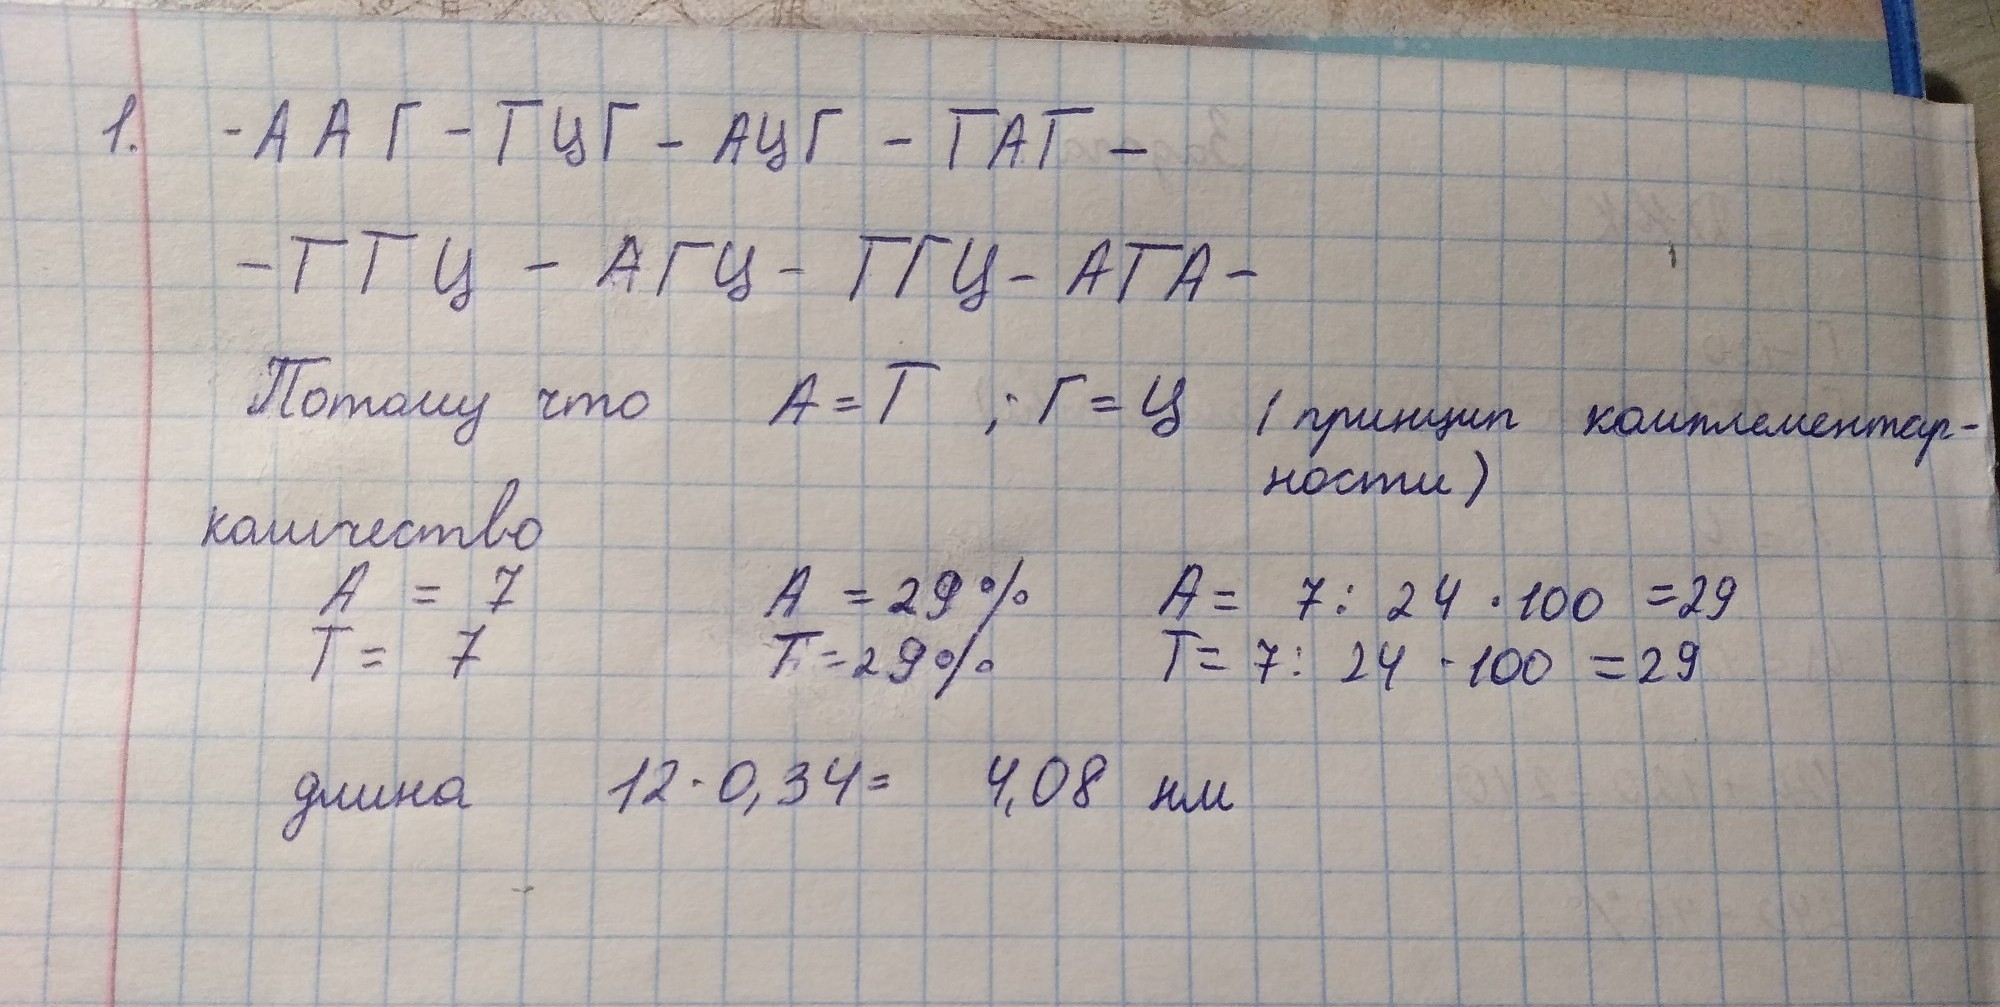 1. -ААГ - ТЦГ - АЦГ - ТАТ -
- ТТЦ - АГЦ - ТГЦ - АТА -
Потому что А = Т ; Г = Ц (принцип комплементар-
ности)
количество
А = 7 А = 29% А = 7 : 24 · 100 = 29
Т = 7 Т = 29% Т = 7 : 24 · 100 = 29
длина 12 · 0,34 = 4,08 нм